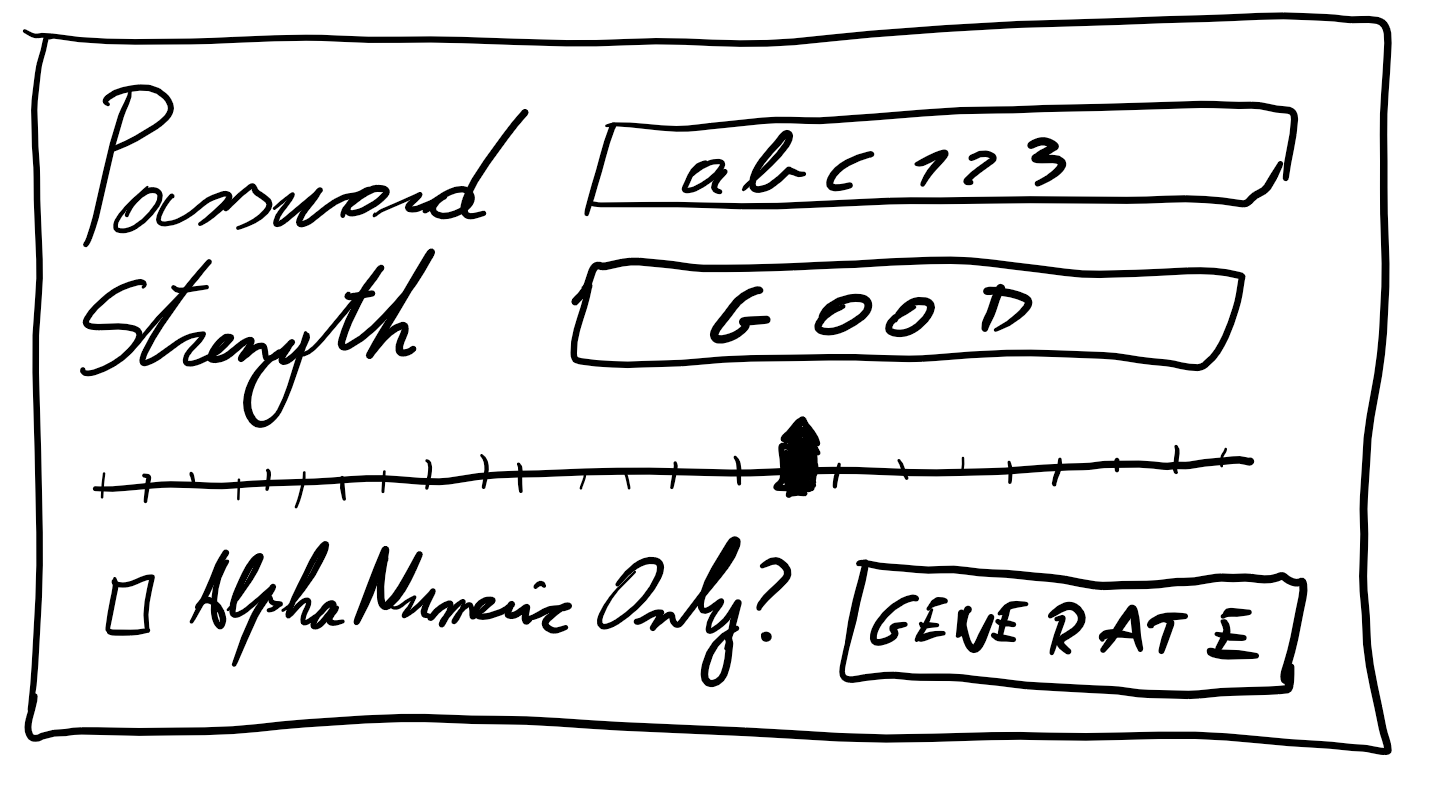 Password abc123
Strength GOOD
AlphaNumeric Only? GENERATE